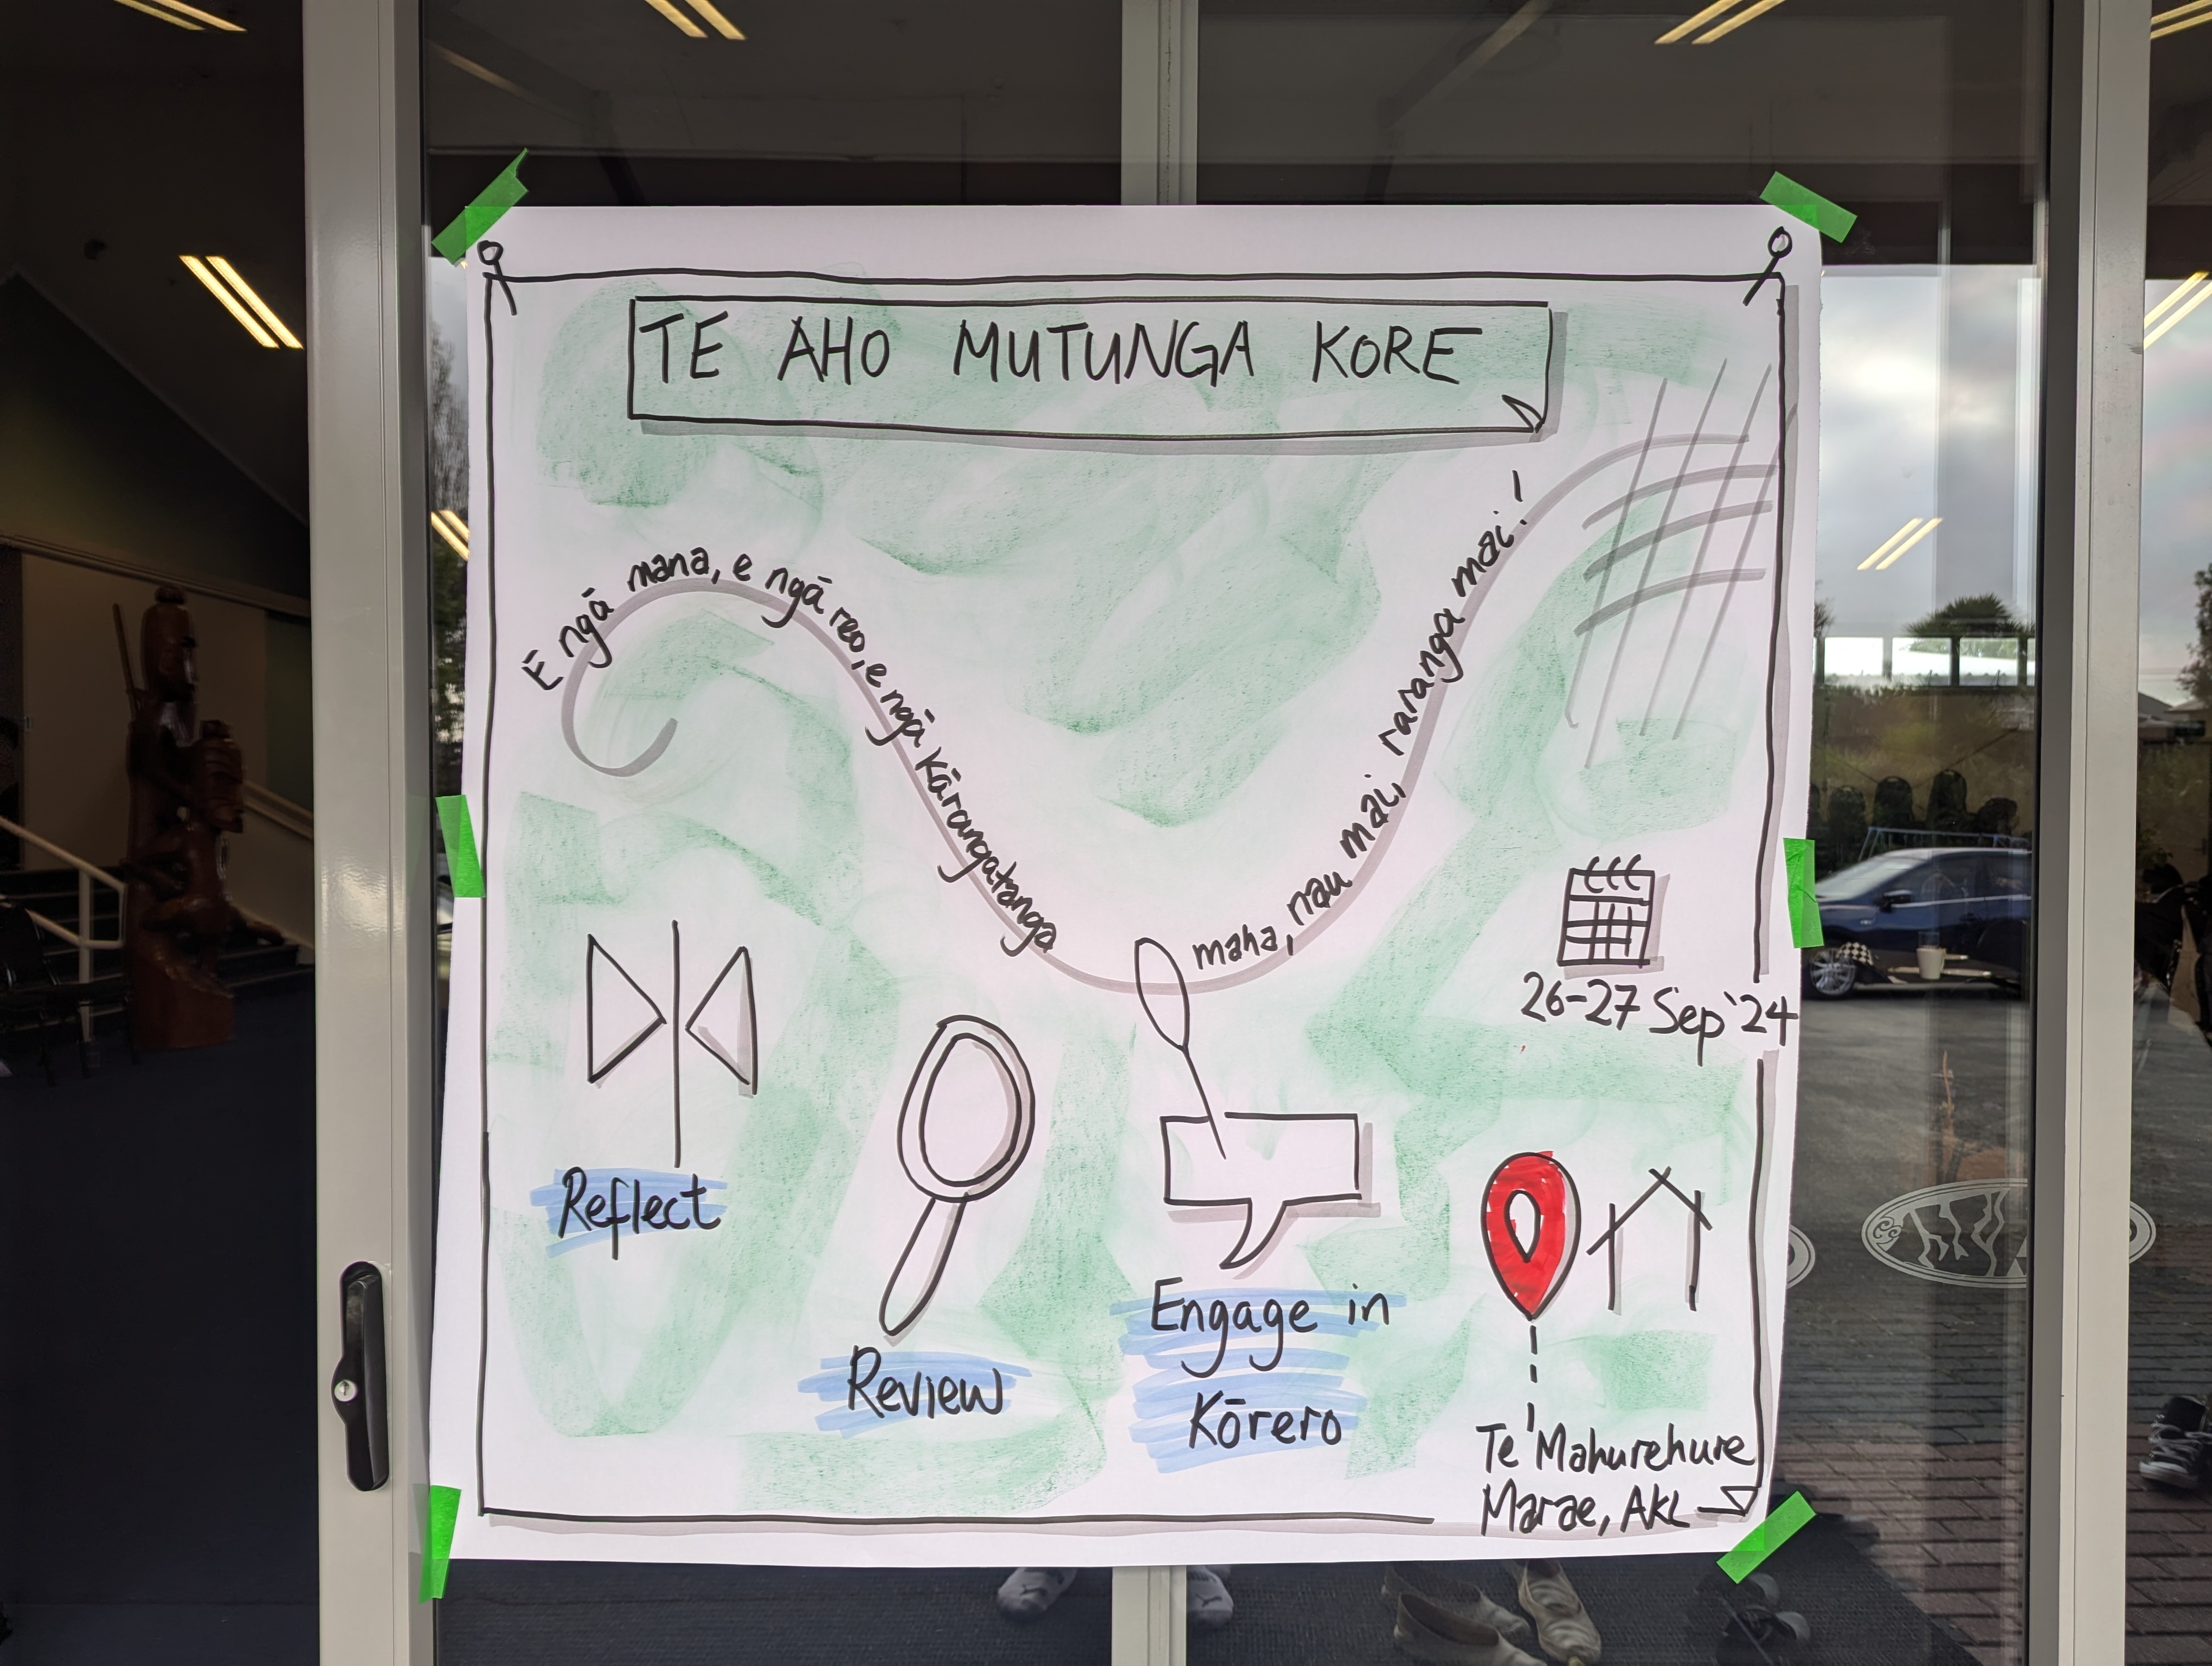 TE AHO MUTUNGA KORE
E ngā mana, e ngā reo, e ngā Kārangatanga maha, nau mai, raranga mai!
26-27 Sep '24
Reflect
Review
Engage in
Kōrero
Te Mahurehure
Marae, AKL